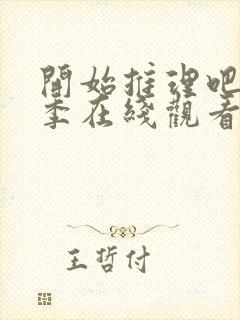 開始推理吧
季在綫觀看
王哲付